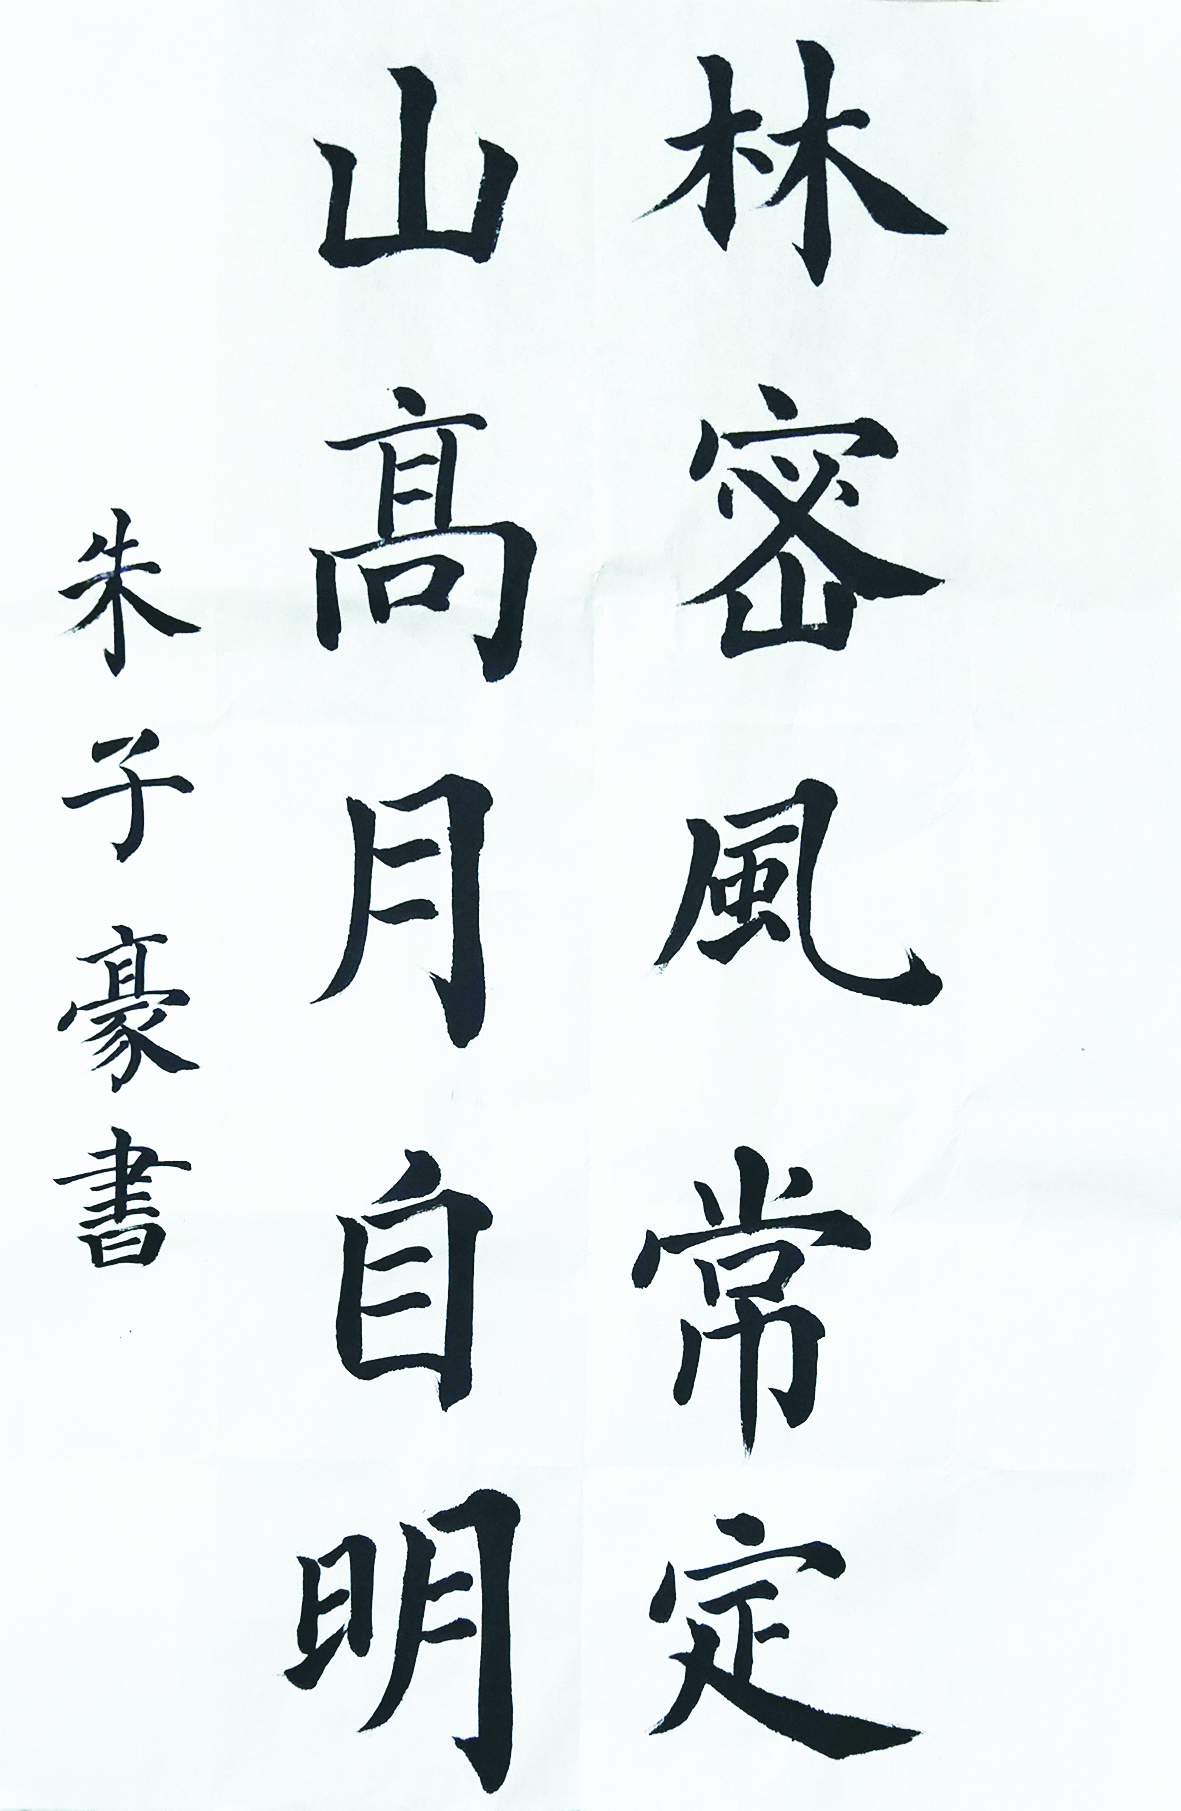 林密風常定
山髙月自明
朱子豪書